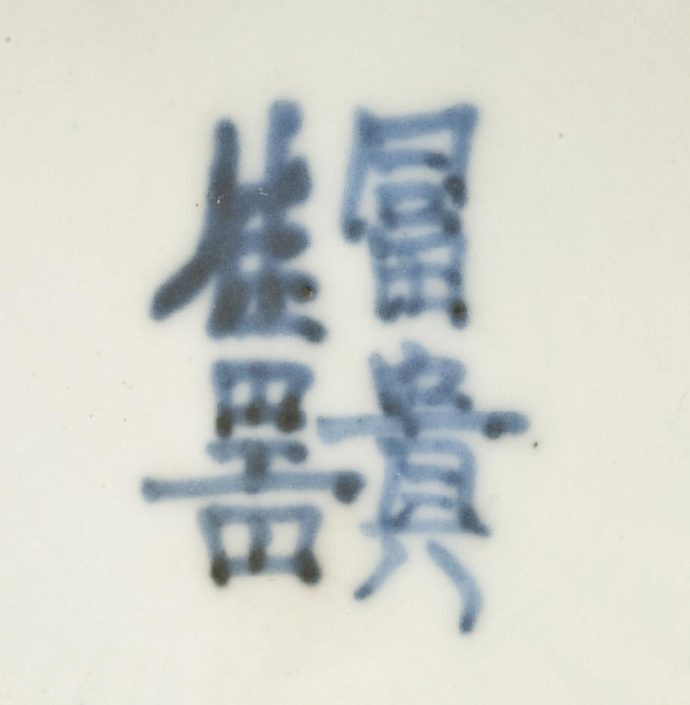 富貴
佳器